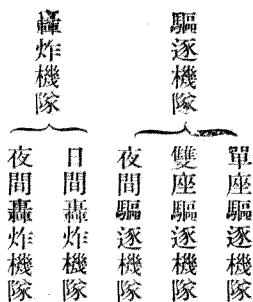 驅逐機隊
單座驅逐機隊
雙座驅逐機隊
夜間驅逐機隊
轟炸機隊
日間轟炸機隊
夜間轟炸機隊